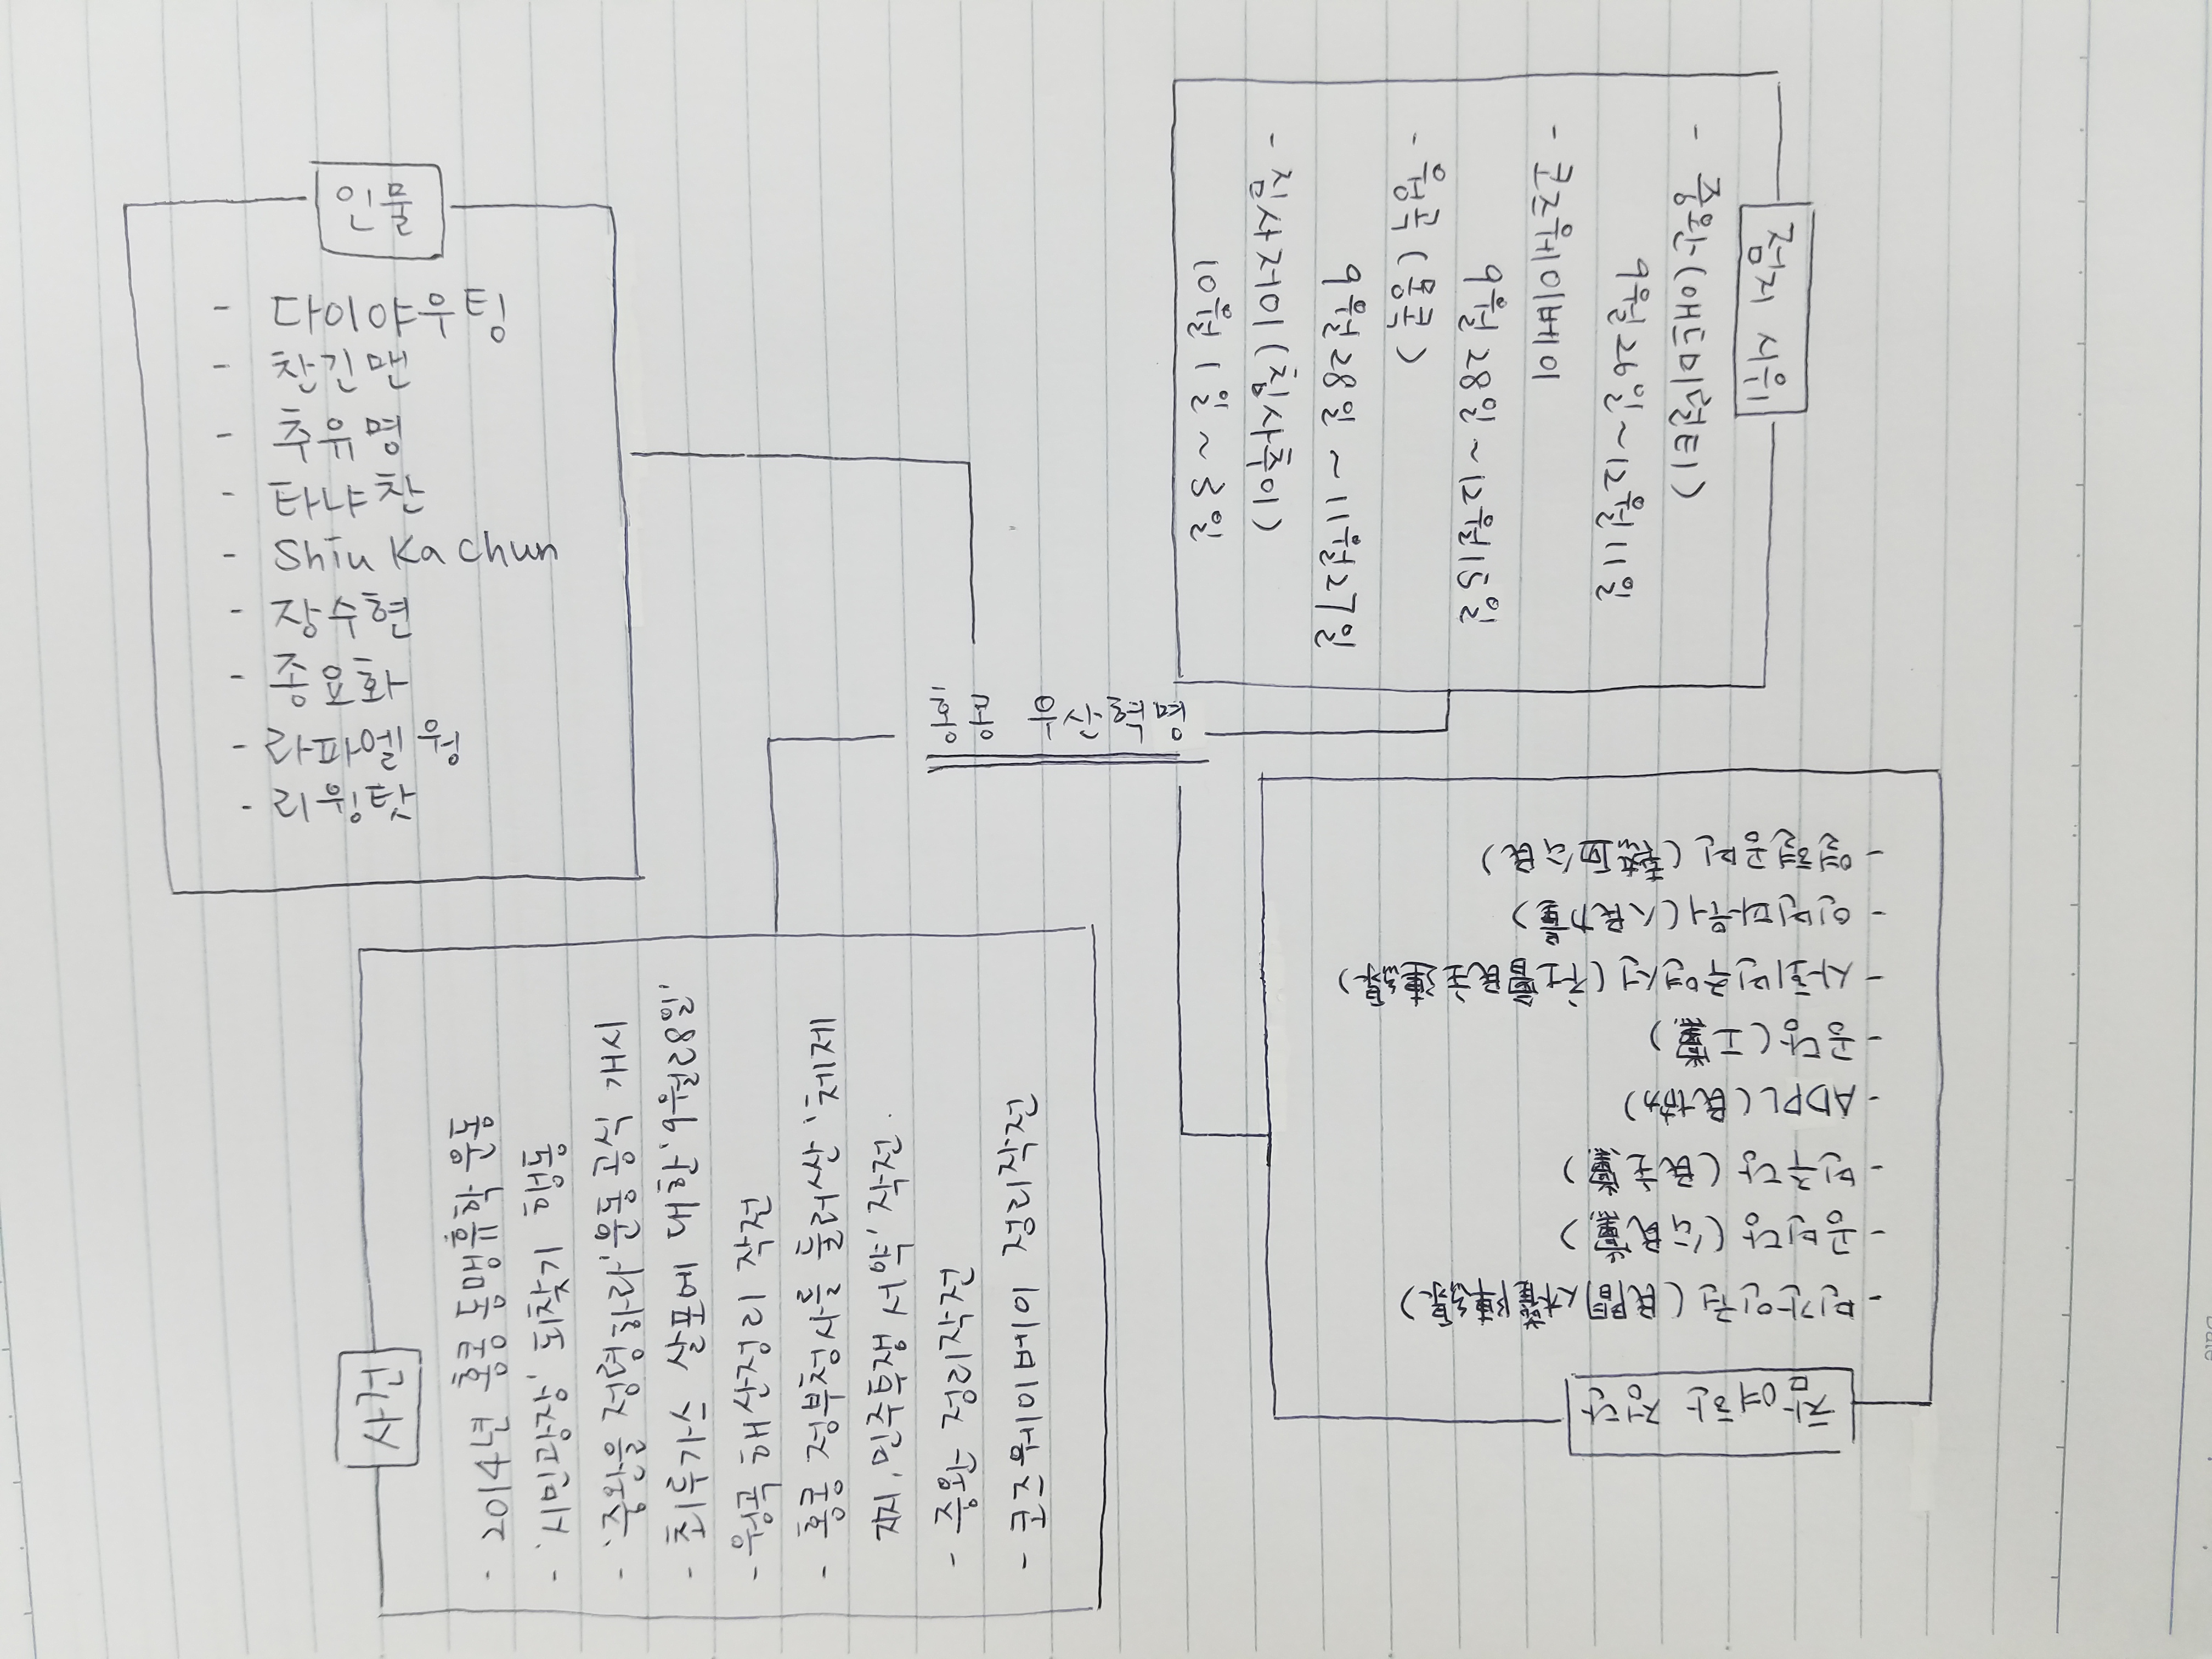 홍콩 우산혁명
인물
- 다이야우팅
- 찬긴맨
- 추유명
- 타냐찬
- Shiu Ka Chun
- 장수현
- 종요화
- 라파엘 웡
- 리웡탓
점거 시위
- 중완(애드미럴티)
9월26일~12월11일
- 코즈웨이베이
9월28일~12월15일
- 웡곡(몽콕)
9월28일~11월27일
- 침사저이(침사추이)
10월1일~3일
사건
- 2014년 홍콩 동맹휴학 운동
- '시민광장' 되찾기 행동
- '중완을 점령하라' 운동 공식 개시
- 최루가스 살포에 대한 '9월28일'
- 웡곡 해산정리 작전
- 홍콩 정부청사를 둘러싼 '체제
저지, 민주투쟁 서약' 작전.
- 중완 정리작전
- 코즈웨이베이 정리작전
참여한 정당
- 민간인권(民間人權陣線)
- 공민당(公民黨)
- 민주당(民主黨)
- ADPL(民協)
- 공당(工黨)
- 사회민주연선(社會民主連線)
- 인민역량(人民力量)
- 열혈공민(熱血公民)